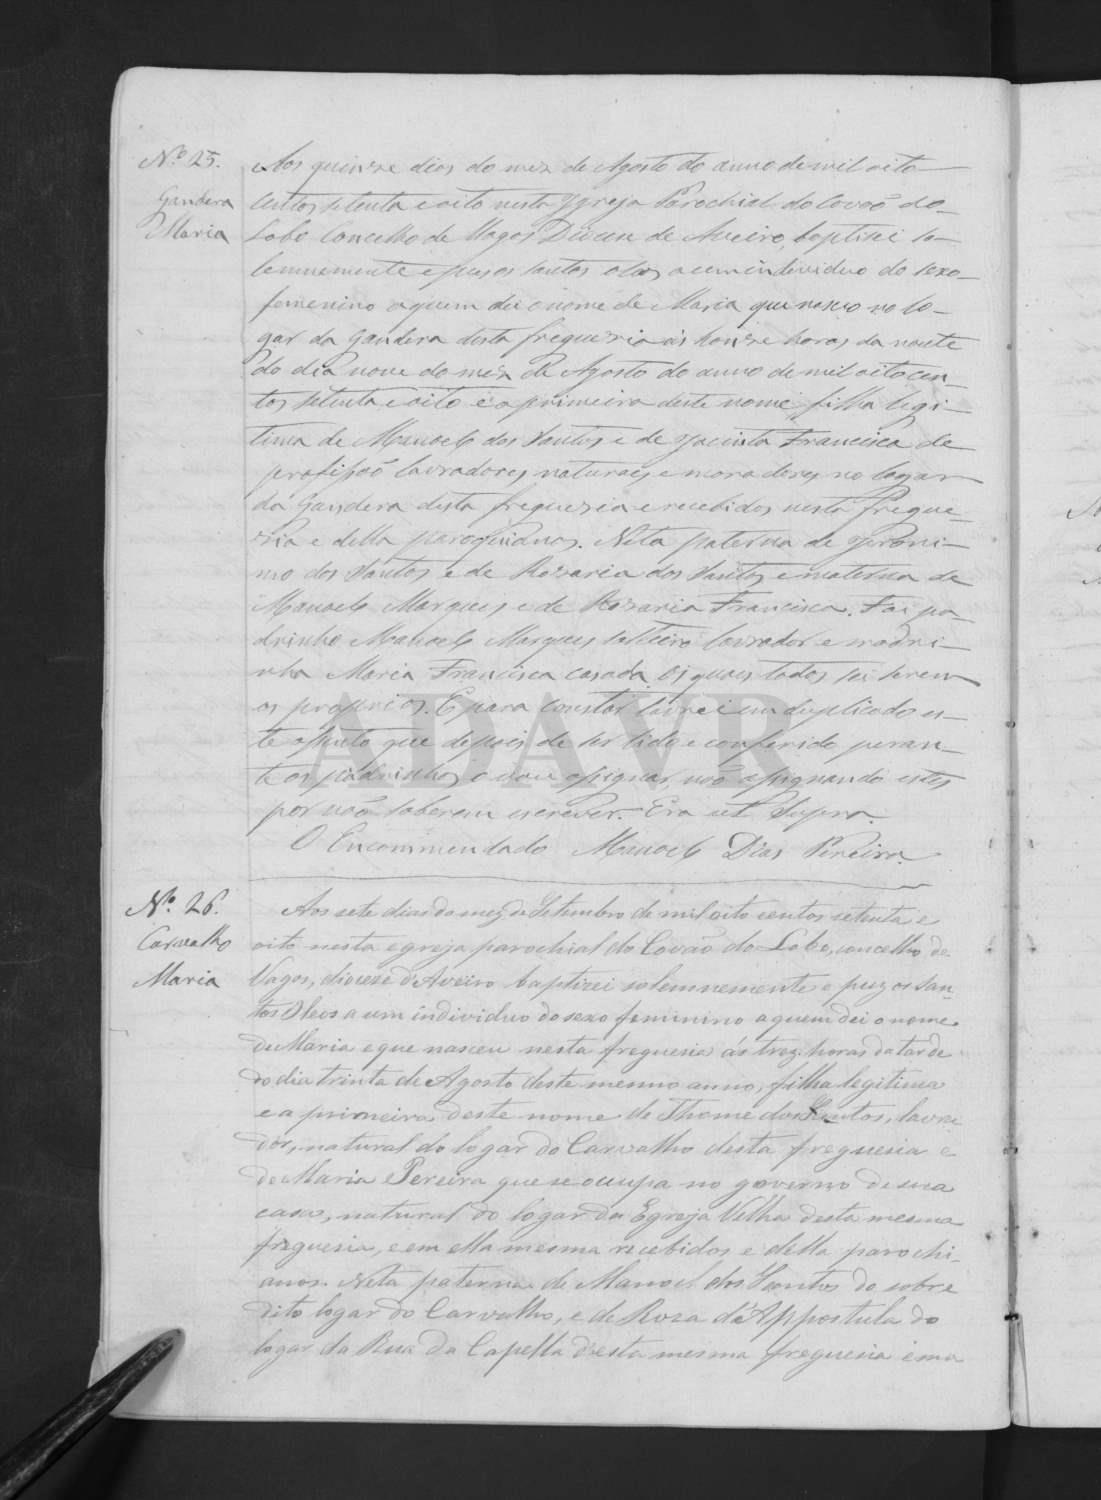 Nº 25.
Gandera
Maria
Aos quinze dias do mez de Agosto do anno de mil oito
centos setenta e oito nesta Ygreja Parochial do Covaõ do
Lobo Concelho de Vagos Diocese de Aveiro, baptisei so-
lemnemente e puz os santos oleos a um individuo do sexo
femenino a quem dei o nome de Maria que nasceu no lo-
gar da Gandera desta freguezia ás honze horas da noute
do dia nove do mez de Agosto do anno de mil oito cen-
tos setenta e oito e a primeira deste nome, filha legi-
tima de Manoel dos Santos e de Jacinta Francisca de
profissaõ lavradores, naturaes e moradores no logar
da Gandera desta freguezia e recebidos nesta fregue-
zia e della paroquianos. Neta paterna de Jeroni-
mo dos Santos e de Rozaria dos Santos e materna de
Manoel Marques e de Rozaria Francisca. Foi pa-
drinho Manoel Marques solteiro lavrador e madri-
nha Maria Francisca casada, os quaes todos sei serem
os proprios. E para constar lavrei em duplicado es-
te assento que depois de ser lido e conferido peran-
te os padrinhos o vou assignar, naõ assignando estes
por naõ saberem escrever. Era ut Supra.
O Encommendado Manoel Dias Pereira.
Nº 26.
Carvalho
Maria
Aos sete dias do mez de Setembro de mil oito centos setenta e
oito nesta egreja parochial do Covão do Lobo, concelho de
Vagos, diocese d'Aveiro baptizei solemnemente e puz os San-
tos Oleos a um individuo do sexo feminino a quem dei o nome
de Maria e que nasceu nesta freguesia ás trez horas da tarde
do dia trinta de Agosto deste mesmo anno, filha legitima
e a primeira deste nome de Thomé dos Santos, lavra
dor, natural do logar do Carvalho desta freguesia e
de Maria Pereira que se occupa no governo de sua
casa, natural do logar da Egreja Velha desta mesma
freguesia, e em ella mesma recebidos e della parochi-
anos. Neta paterna de Manoel dos Santos do sobre
dito logar do Carvalho, e de Roza d'Appostula do
logar da Rua da Capella desta mesma freguesia e ma
ADAVR